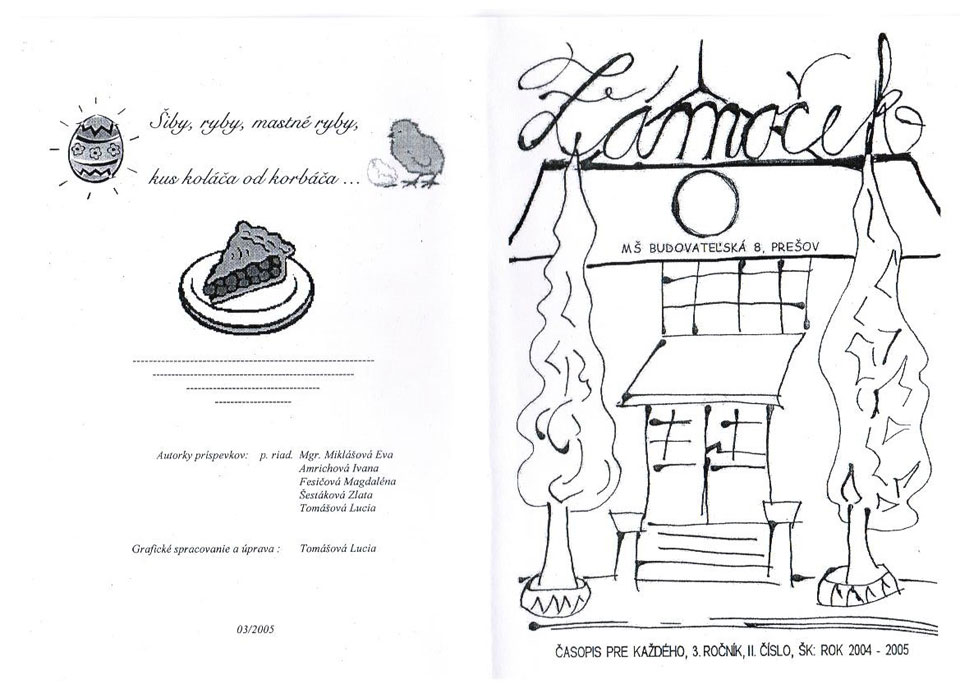 Šiby, ryby, mastné ryby,
kus koláča od korbáča ...
Autorky príspevkov: p. riad. Mgr. Miklášová Eva
Amrichová Ivana
Fesičová Magdaléna
Šestáková Zlata
Tomášová Lucia
Grafické spracovanie a úprava : Tomášová Lucia
03/2005
Zámoček
MŠ BUDOVATEĽSKÁ 8, PREŠOV
ČASOPIS PRE KAŽDÉHO, 3. ROČNÍK, II. ČÍSLO, ŠK: ROK 2004 - 2005